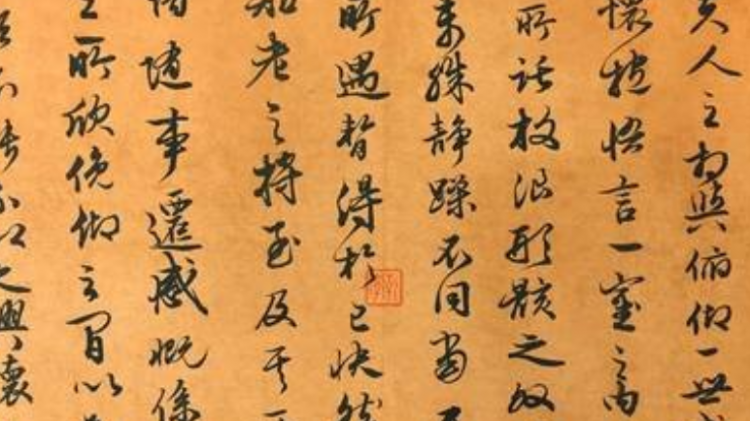 夫人之相與俯仰一世
懷抱悟言一室之內
所託放浪形骸之外
萬殊靜躁不同當其
所遇暫得於己快然
知老之將至及其
情隨事遷感慨係
之所欣俛仰之間以
不能不以之興懷